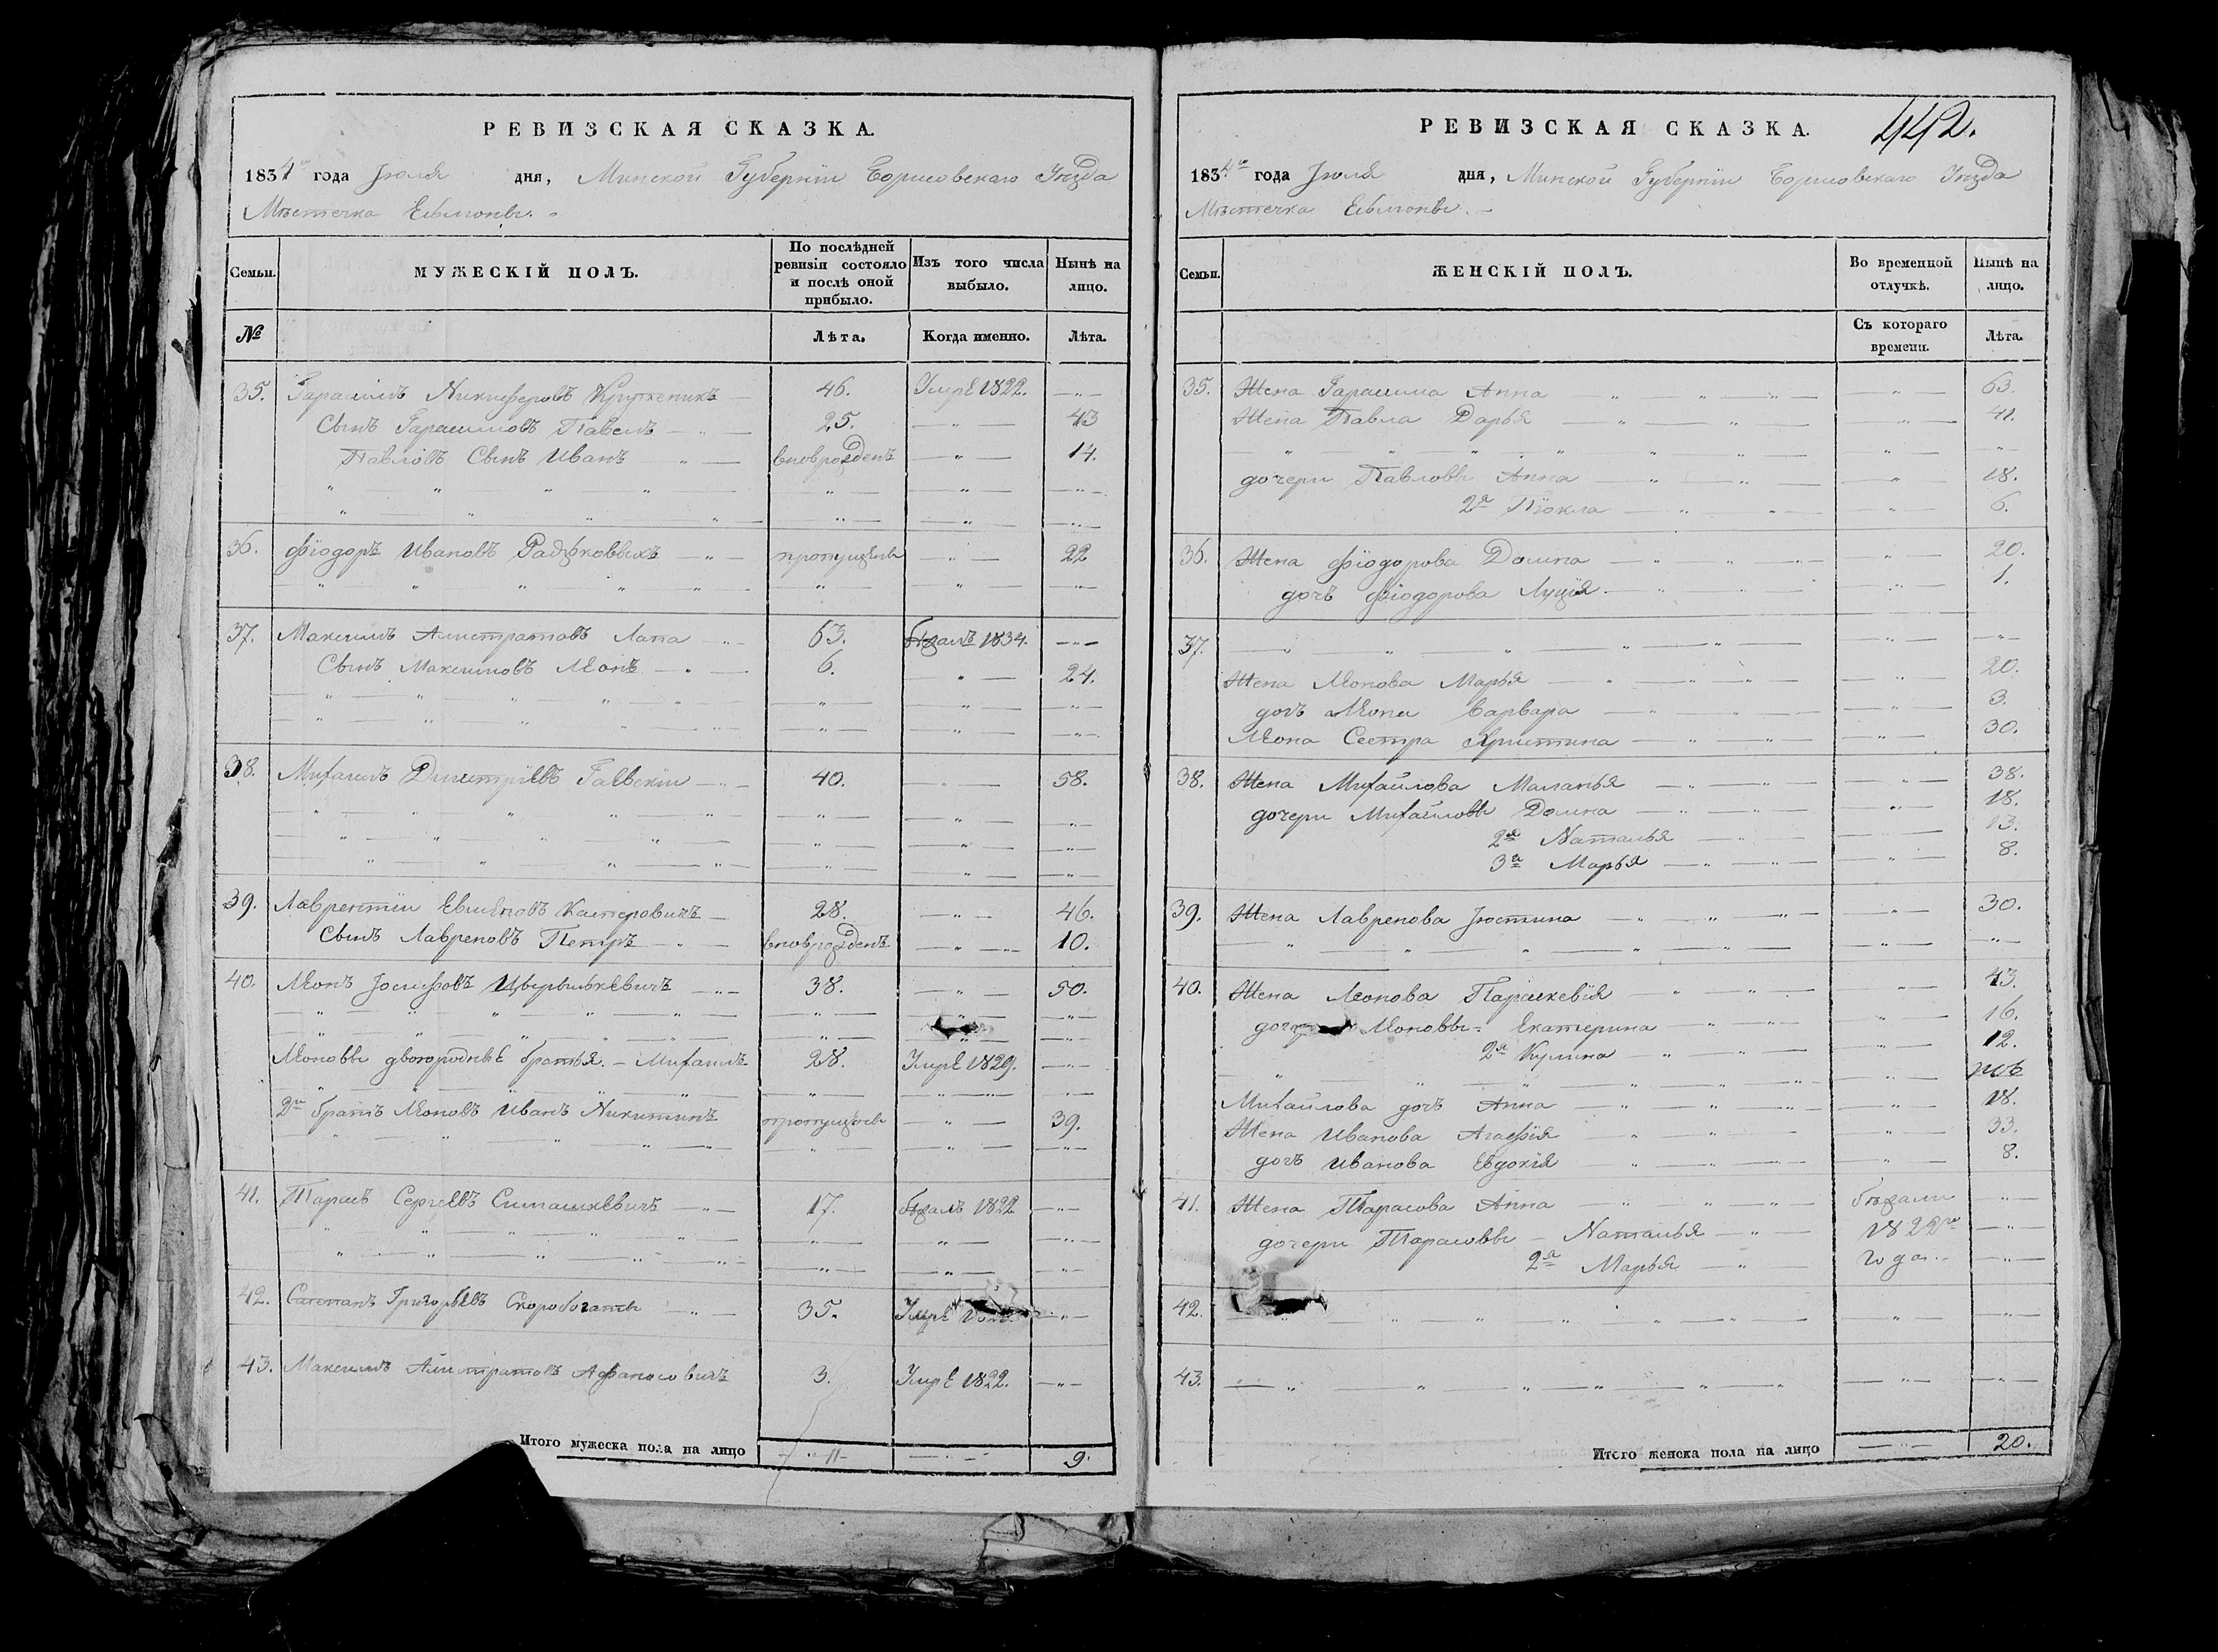 РЕВИЗСКАЯ СКАЗКА.
1834 го года Іюля дня, Минской Губерніи Борисовскаго Уѣзда
Мѣстечка
Семьи.
МУЖЕСКІЙ ПОЛЪ.
По послѣдней ревизіи состояло и послѣ оной прибыло.
Изъ того числа выбыло.
Нынѣ на лицо.
№
Лѣта.
Когда именно.
Лѣта.
35. Гарасимъ Никифоровъ 46. Умре 1822.
Сынъ Гарасимовъ Павелъ 25. 43
Павловъ Сынъ Иванъ вновърожденъ 14.
36. Фіодоръ Ивановъ пропущенъ 22
37. Максимъ Лапа 63. бѣжалъ 1834.
Сынъ Максимовъ Леонъ 6. 24.
38. Михаилъ Дмитріевъ Гаевскіи 40. 58.
39. Лаврентіи 28. 46.
Сынъ Лавреновъ Петръ вновърожденъ 10.
40. Леонъ Іосифовъ 38. 50.
Леоновы двоюродные братья. Михаилъ 28. Умре 1829.
2й братъ Леоновъ Иванъ Никитинъ пропущенъ 39.
41. Тарасъ Сергеевъ Сипашкевичъ 17. бѣжалъ 1822
42. Григорьевъ Скоробогаты 35. Умре
43. Максимъ 3. Умре 1822.
Итого мужеска пола на лицо 11 9.
442.
РЕВИЗСКАЯ СКАЗКА.
1834 го года Іюля дня, Минской Губерніи Борисовскаго Уѣзда
Мѣстечка
Семьи.
ЖЕНСКІЙ ПОЛЪ.
Во временной отлучкѣ.
Нынѣ на лицо.
Съ котораго времени.
Лѣта.
35. Жена Гарасима Анна 63.
Жена Павла Дарья 41.
дочери Павловы Анна 18.
2я Піокла 6.
36. Жена Фіодорова Домна 20.
дочъ Фіодорова Луція 1.
37.
Жена Леонова Марья 20.
дочъ Леона Варвара 3.
Леона Сестра Христина 30.
38. Жена Михайлова Маланья 38.
дочери Михайловы Домна 18.
2я Наталья 13.
3я Марья 8.
39. Жена Лавренова Іюстина 30.
40. Жена Леонова Параскевія 43.
Леоновы Екатерина 16.
2я Кулина 12.
Михайлова дочъ Анна 18.
Жена Иванова Агафія 33.
дочъ Иванова Евдокія 8.
41. Жена Тарасова Анна бѣжали
дочери Тарасовы Наталья 1822го
2я Марья года
42.
43.
Итого женска пола на лицо 20.